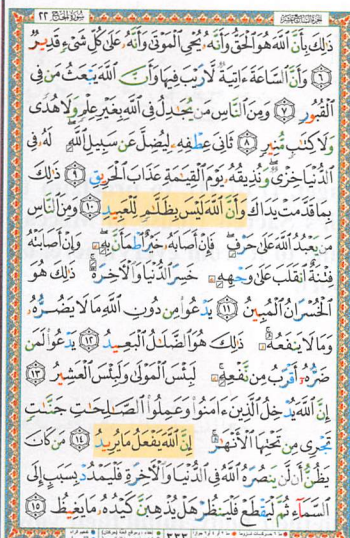 سُورَةُ الحَجِّ ٢٢
ذَٰلِكَ بِأَنَّ ٱللَّهَ هُوَ ٱلْحَقُّ وَأَنَّهُۥ يُحْىِ ٱلْمَوْتَىٰ وَأَنَّهُۥ عَلَىٰ كُلِّ شَىْءٍ قَدِيرٌ
٦ وَأَنَّ ٱلسَّاعَةَ ءَاتِيَةٌ لَّا رَيْبَ فِيهَا وَأَنَّ ٱللَّهَ يَبْعَثُ مَن فِى
ٱلْقُبُورِ ٧ وَمِنَ ٱلنَّاسِ مَن يُجَٰدِلُ فِى ٱللَّهِ بِغَيْرِ عِلْمٍ وَلَا هُدًى
وَلَا كِتَٰبٍ مُّنِيرٍ ٨ ثَانِىَ عِطْفِهِۦ لِيُضِلَّ عَن سَبِيلِ ٱللَّهِ ۖ لَهُۥ فِى
ٱلدُّنْيَا خِزْىٌ ۖ وَنُذِيقُهُۥ يَوْمَ ٱلْقِيَٰمَةِ عَذَابَ ٱلْحَرِيقِ ٩ ذَٰلِكَ
بِمَا قَدَّمَتْ يَدَاكَ وَأَنَّ ٱللَّهَ لَيْسَ بِظَلَّٰمٍ لِّلْعَبِيدِ ١٠ وَمِنَ ٱلنَّاسِ
مَن يَعْبُدُ ٱللَّهَ عَلَىٰ حَرْفٍ ۖ فَإِنْ أَصَابَهُۥ خَيْرٌ ٱطْمَأَنَّ بِهِۦ ۖ وَإِنْ أَصَابَتْهُ
فِتْنَةٌ ٱنقَلَبَ عَلَىٰ وَجْهِهِۦ خَسِرَ ٱلدُّنْيَا وَٱلْءَاخِرَةَ ۚ ذَٰلِكَ هُوَ
ٱلْخُسْرَانُ ٱلْمُبِينُ ١١ يَدْعُوا۟ مِن دُونِ ٱللَّهِ مَا لَا يَضُرُّهُۥ
وَمَا لَا يَنفَعُهُۥ ۚ ذَٰلِكَ هُوَ ٱلضَّلَٰلُ ٱلْبَعِيدُ ١٢ يَدْعُوا۟ لَمَن
ضَرُّهُۥٓ أَقْرَبُ مِن نَّفْعِهِۦ ۚ لَبِئْسَ ٱلْمَوْلَىٰ وَلَبِئْسَ ٱلْعَشِيرُ ١٣
إِنَّ ٱللَّهَ يُدْخِلُ ٱلَّذِينَ ءَامَنُوا۟ وَعَمِلُوا۟ ٱلصَّٰلِحَٰتِ جَنَّٰتٍ
تَجْرِى مِن تَحْتِهَا ٱلْأَنْهَٰرُ ۚ إِنَّ ٱللَّهَ يَفْعَلُ مَا يُرِيدُ ١٤ مَن كَانَ
يَظُنُّ أَن لَّن يَنصُرَهُ ٱللَّهُ فِى ٱلدُّنْيَا وَٱلْءَاخِرَةِ فَلْيَمْدُدْ بِسَبَبٍ إِلَى
ٱلسَّمَآءِ ثُمَّ لْيَقْطَعْ فَلْيَنظُرْ هَلْ يُذْهِبَنَّ كَيْدُهُۥ مَا يَغِيظُ ١٥
٣٣٣